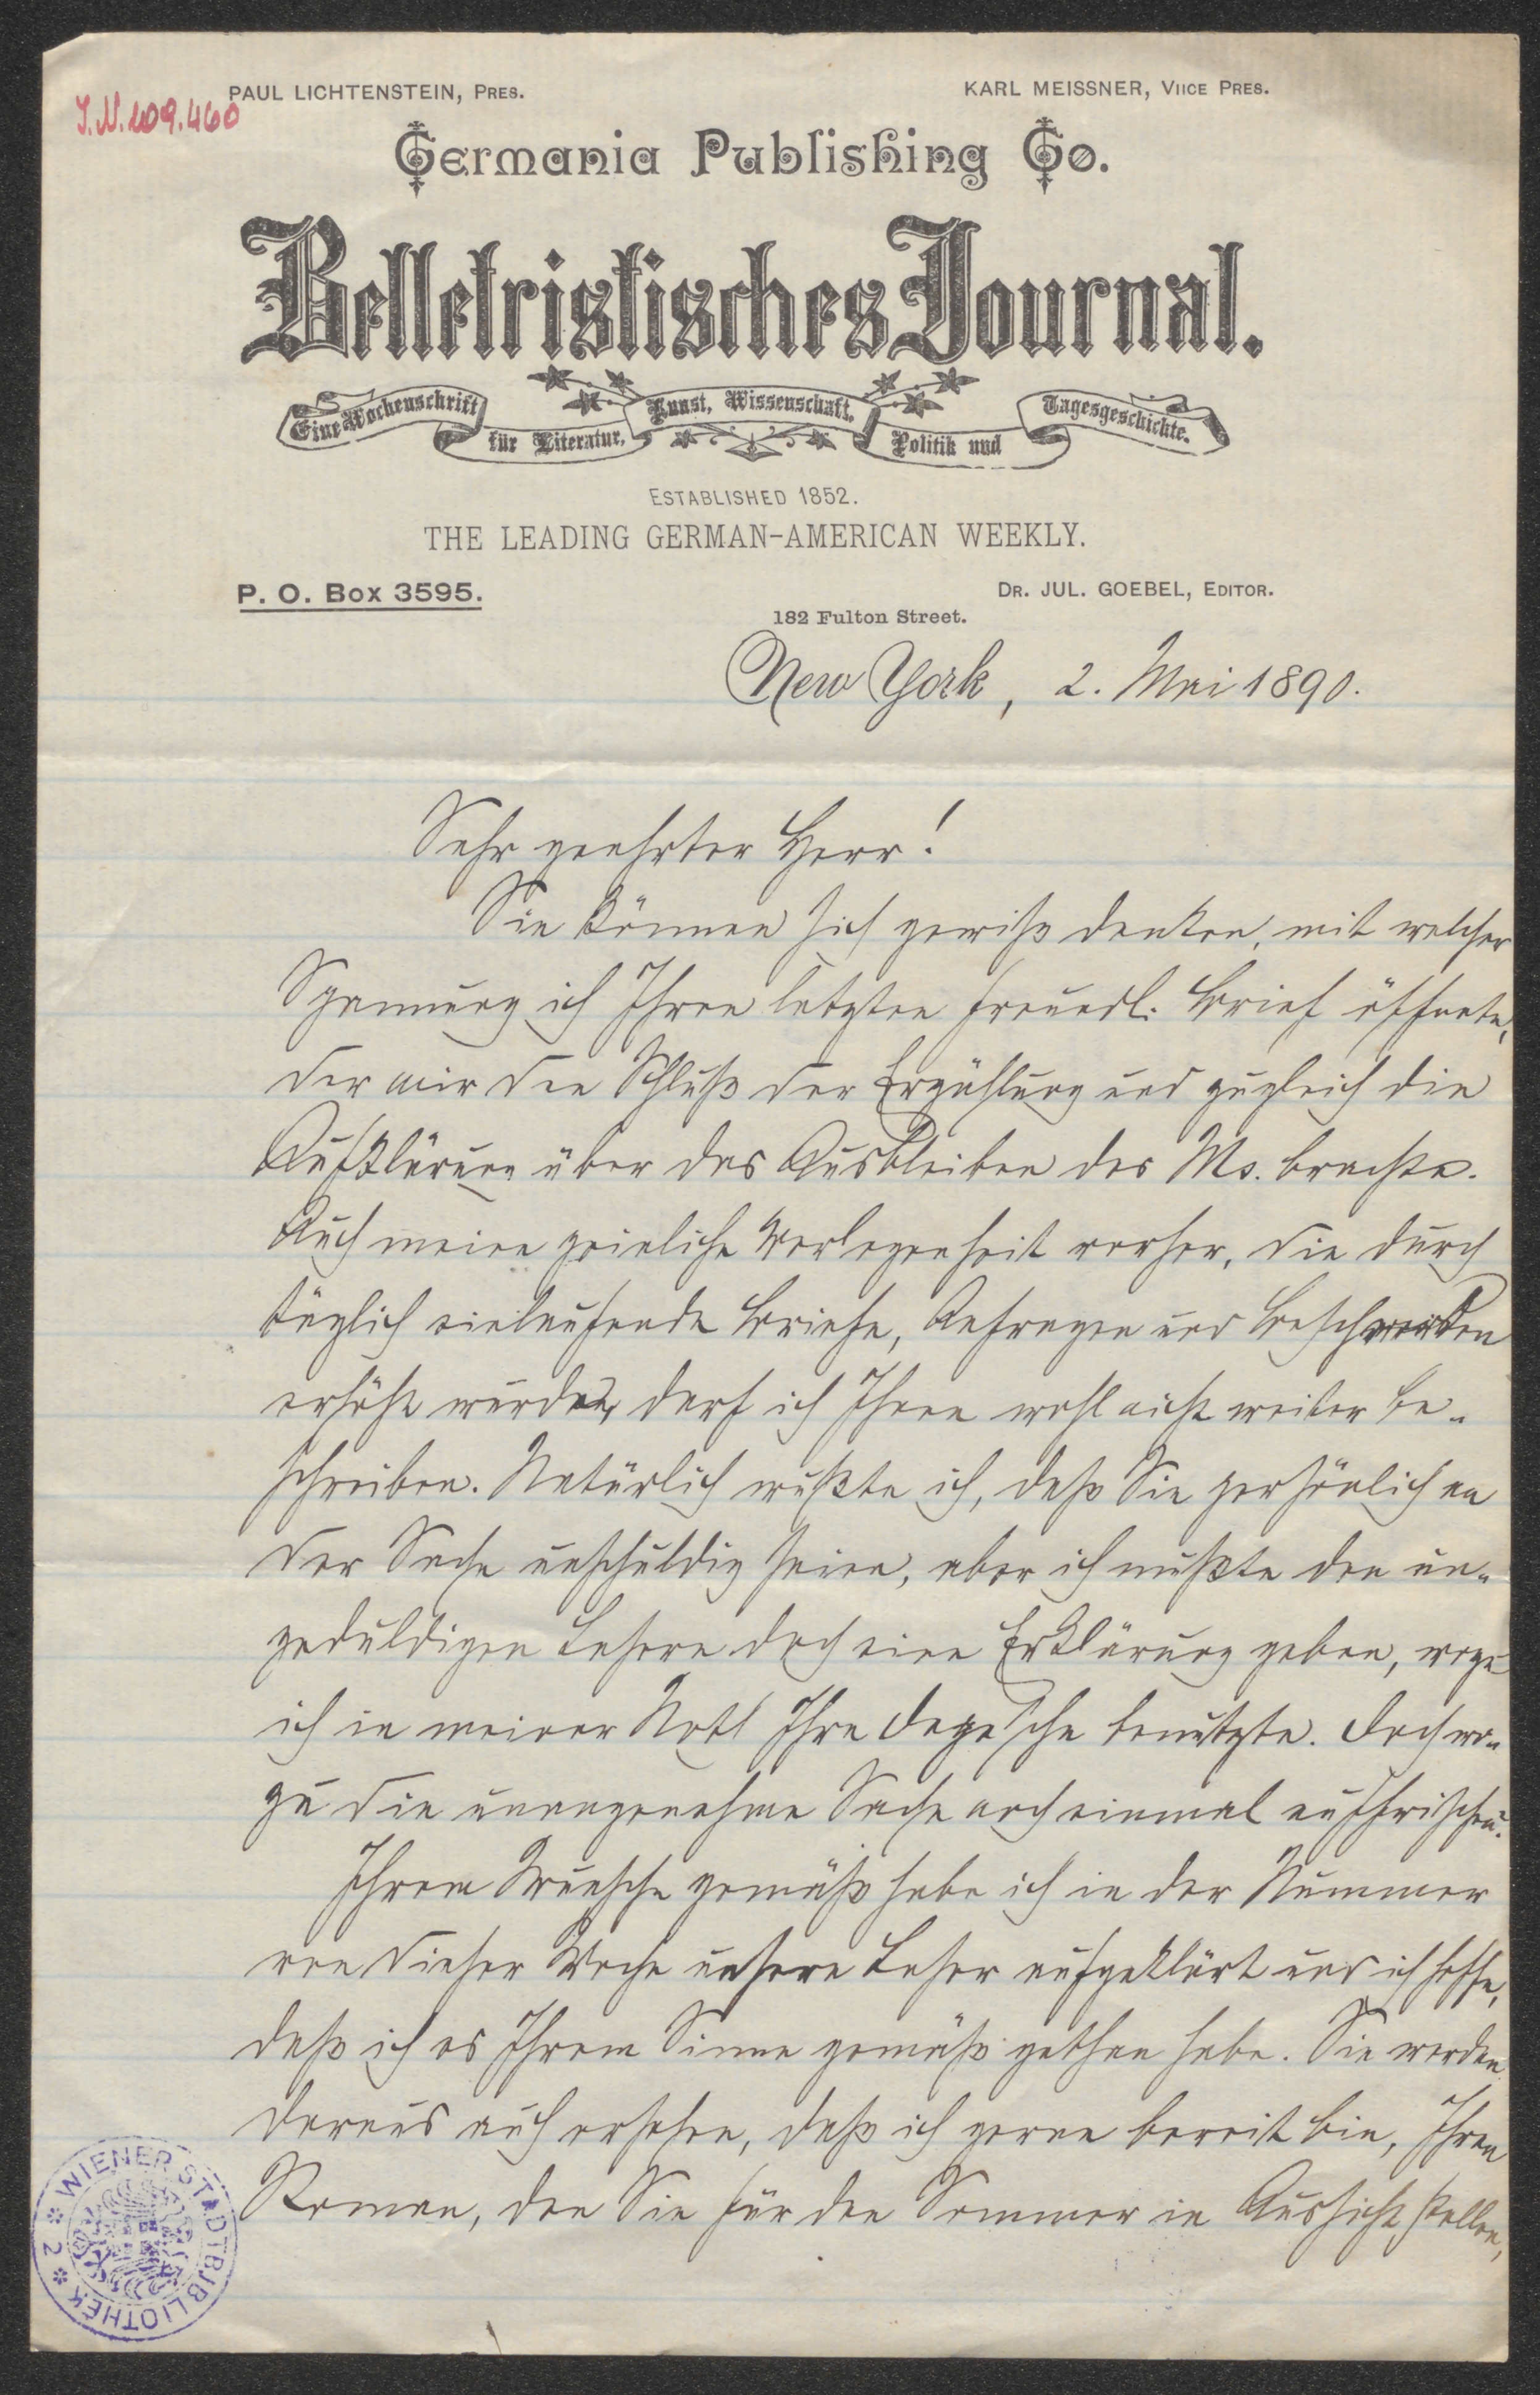 J.N. 109.460
PAUL LICHTENSTEIN, PRES.
KARL MEISSNER, VIICE PRES.
Germania Publishing Co.
Belletristisches Journal.
Eine Wochenschrift für Literatur, Kunst, Wissenschaft, Politik und Tagesgeschichte.
ESTABLISHED 1852.
THE LEADING GERMAN-AMERICAN WEEKLY.
P. O. Box 3595.
DR. JUL. GOEBEL, EDITOR.
182 Fulton Street.
New York, 2. Mai 1890.
Sehr geehrter Herr!
Sie können sich gewiß denken, mit welcher
Spannung ich Ihren letzten freundl. Brief öffnete,
der mir den Schluß der Erzählung und zugleich die
Aufklärung über das Ausbleiben des Ms. brachte.
Auch meine peinliche Verlegenheit vorher, die durch
täglich einlaufende Briefe, Anfragen und Beschwerden
erhöht wurde, darf ich Ihnen wohl nicht weiter be-
schreiben. Natürlich wußte ich, daß Sie persönlich an
der Sache unschuldig seien, aber ich mußte den un-
geduldigen Lesern doch eine Erklärung geben, wozu
ich in meiner Noth Ihre Depesche benutzte. Doch wo-
zu die unangenehme Sache noch einmal auffrischen.
Ihrem Wunsche gemäß habe ich in der Nummer
von dieser Woche unsere Leser aufgeklärt und ich hoffe,
daß ich es Ihrem Sinne gemäß gethan habe. Sie werden
daraus auch ersehen, daß ich gerne bereit bin, Ihren
Roman, den Sie für den Sommer in Aussicht stellen,
WIENER STADTBIBLIOTHEK 2